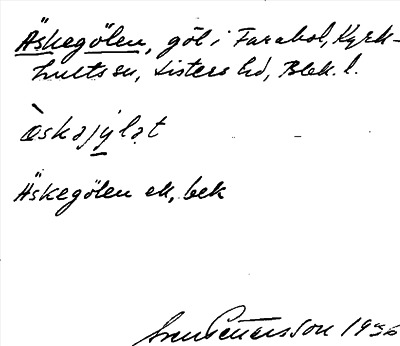 Äskegölen, göl i Farabol, Kyrk-
hults sn, Listers hd, Blek. l.
Äskegölen ek, bek
Sven Pettersson 1936